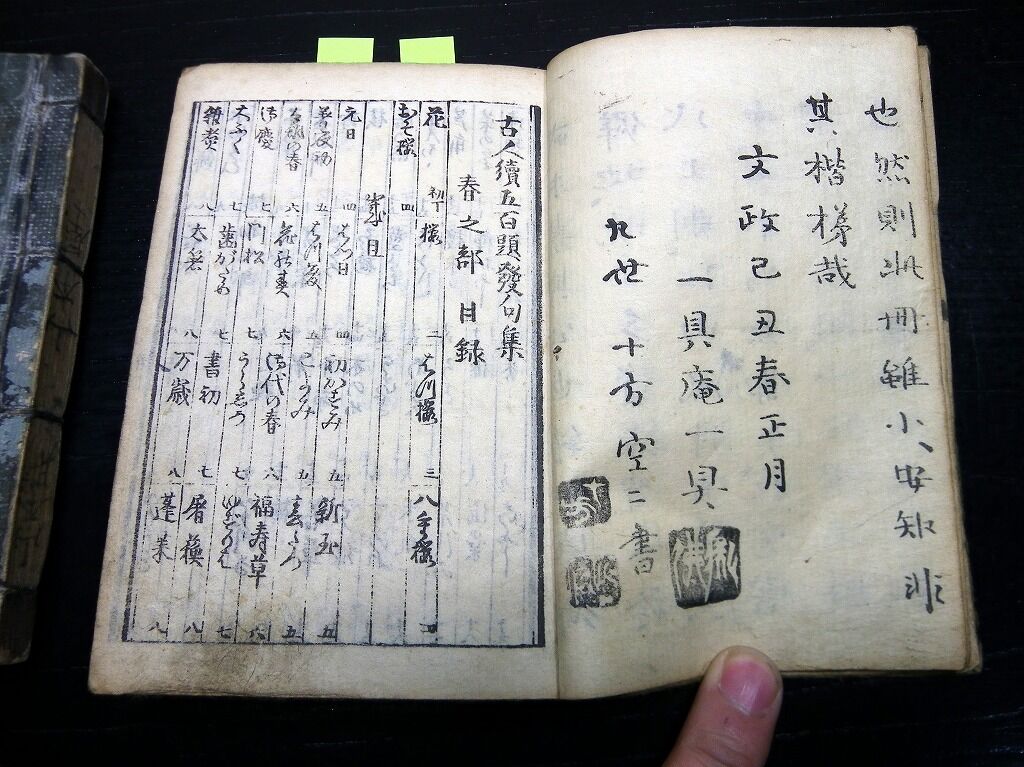 也然則此冊雖小安知非
其楷梯哉
文政己丑春正月
一具庵一具
九世 多十方空二 書
古人續五百題發句集
春之部目録
花 初丁 桜 二 はつ桜 三 八重桜 四
四
歳旦
元日 四 はつ日 四 初かすみ 五 新玉 五
五 はつ 五 五 五
の春 六 六 御代の春 六 福寿草 六
御慶 七 門松 七 七 七
大ふく 七 歯がため 七 書初 七 屠蘇 八
八 太箸 八 万歳 八 蓬莱 八